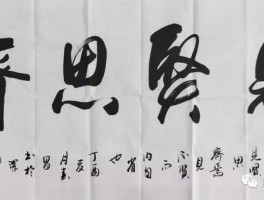 見賢思齊
見賢思齊焉見不賢而内自省也丁酉夏月書於